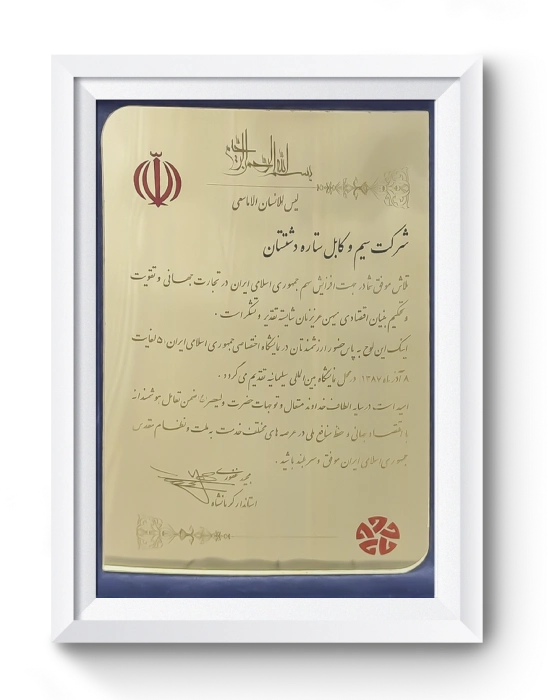 بسم الله الرحمن الرحیم
لیس للانسان الا ما سعی
شرکت سیم و کابل ستاره دشتستان
تلاش موفق شما در جهت افزایش سهم جمهوری اسلامی ایران در تجارت جهانی و تقویت
و تحکیم بنیان اقتصادی میهن عزیزمان شایسته تقدیر و تشکر است .
اینک این لوح به پاس حضور ارزشمندتان در نمایشگاه اختصاصی جمهوری اسلامی ایران، ۵ لغایت
۸ آذر ماه ۱۳۸۷ در محل نمایشگاه بین المللی سلیمانیه تقدیم می گردد .
امید است در سایه الطاف خداوند متعال و توجهات حضرت ولیعصر (عج) ضمن تعامل هوشمندانه
با اقتصاد جهانی و حفظ منافع ملی در عرصه های مختلف خدمت به ملت و نظام مقدس
جمهوری اسلامی ایران موفق و سربلند باشید .
مجید غفوری
استاندار کرمانشاه